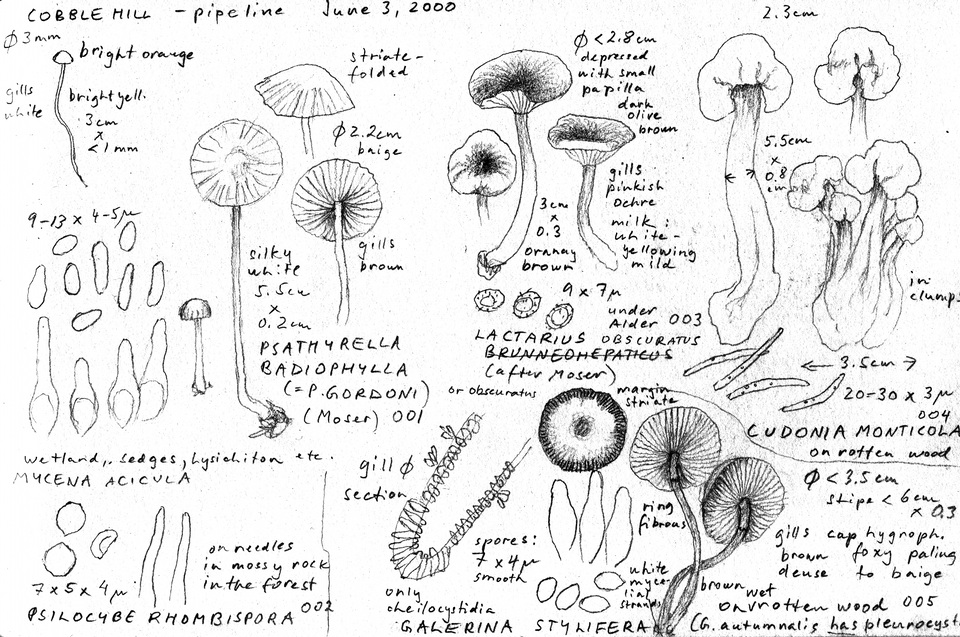 COBBLE HILL - pipeline June 3, 2000
ø 3mm
bright orange
gills
white
bright yell.
3cm
x
<1mm
9-13 x 4-5µ
striate-
folded
ø 2.2cm
beige
silky
white
5.5cm
x
0.2cm
gills
brown
PSATHYRELLA
BADIOPHYLLA
(= P. GORDONI)
(Moser) 001
wetland, sedges, Lysichiton etc.
MYCENA ACICULA
7 x 5 x 4µ
on needles
in mossy rock
in the forest
PSILOCYBE RHOMBISPORA 002
ø < 2.8cm
depressed
with small
papilla
dark
olive
brown
gills
pinkish
ochre
milk:
white-
yellowing
mild
3cm
x
0.3
orangy
brown
9 x 7µ
under
Alder 003
LACTARIUS OBSCURATUS
BRUNNEOHEPATICUS
(after Moser)
or obscuratus
2.3cm
5.5cm
x
0.8
cm
in
clumps
3.5cm
20-30 x 3µ
004
CUDONIA MONTICOLA
on rotten wood
margin
striate
gill ø
section
only
cheilocystidia
spores:
7 x 4µ
smooth
ring
fibrous
white
myce-
lial
strands
ø < 3.5cm
stipe < 6cm
x 0.3
gills cap hygroph.
brown foxy paling
dense to baige
brown
wet
on rotten wood 005
GALERINA STYLIFERA
(G. autumnalis has pleurocyst